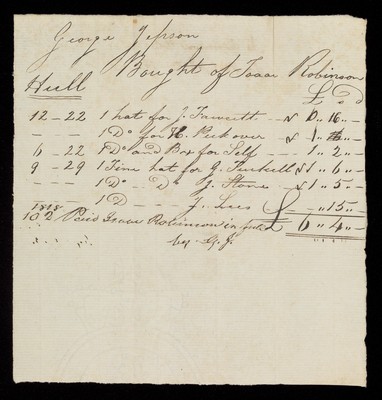 George Jepson
Bought of Isaac Robinson
Hull
£ s d
12 - 22 1 hat for J. Fawcett - 0 " 16 " -
- - 1 Do for H. Peckover - 1 " "  -
6 - 22 Do and Box for Self - - 1 " 2 " -
9 - 29 1 Fine hat for G. 1 " 6 " -
- - - 1 Do - Do J. Stone 1 " 5 " -
1 D - - - J. Lees - " 15 " -
1818
10 2 Paid Isaac Robinson in full £ 6 " 4 " -
by G. J.